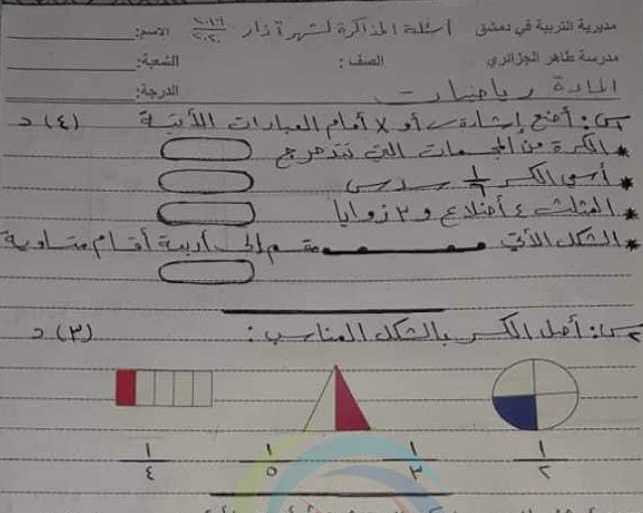 مديرية التربية في دمشق أسئلة المذاكرة لشهر آذار ٢٠١٩ ٢٠٢٠ الاسم:
مدرسة طاهر الجزائري الصف: الشعبة:
المادة رياضيات الدرجة:
س١: أضع إشارة ✓ أو X أمام العبارات الآتية (٤) د
* الكرة من المجسمات التي تتدحرج
* أسمي الكسر ١/٦ سدس
* المثلث له ٤ أضلاع و ٣ زوايا
* الشكل الآتي مقسم إلى أربعة أقسام متساوية
س٢: أصل الكسر بالشكل المناسب: (٣) د
١/٢ ١/٣ ١/٥ ١/٤